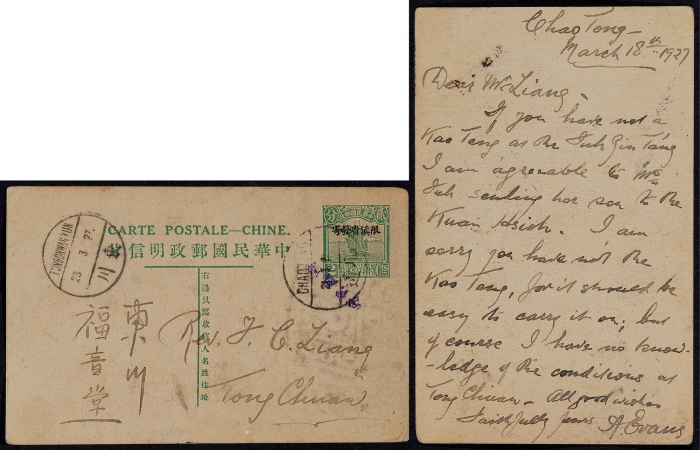 Chao Tong -
March 18th 1927
Dear Mr Liang -
If you have not a
Kao Teng at the Suh Gin Tang
I am agreeable to Mrs
Suh sending her son to the
Kuan Hsioh. I am
sorry you have not the
Kao Teng, for it should be
easy to carry it on, but
of course I have no know-
-ledge of the conditions at
Tong Chuan - All good wishes
Faithfully yours A. Evans
CARTE POSTALE—CHINE.
中華民國郵政明信片
限滇省發寄
右邊只寫收信人名姓住址
23 3 27
川
CHAO
東川
福音堂
Rev. J. C. Liang
Tong Chuan